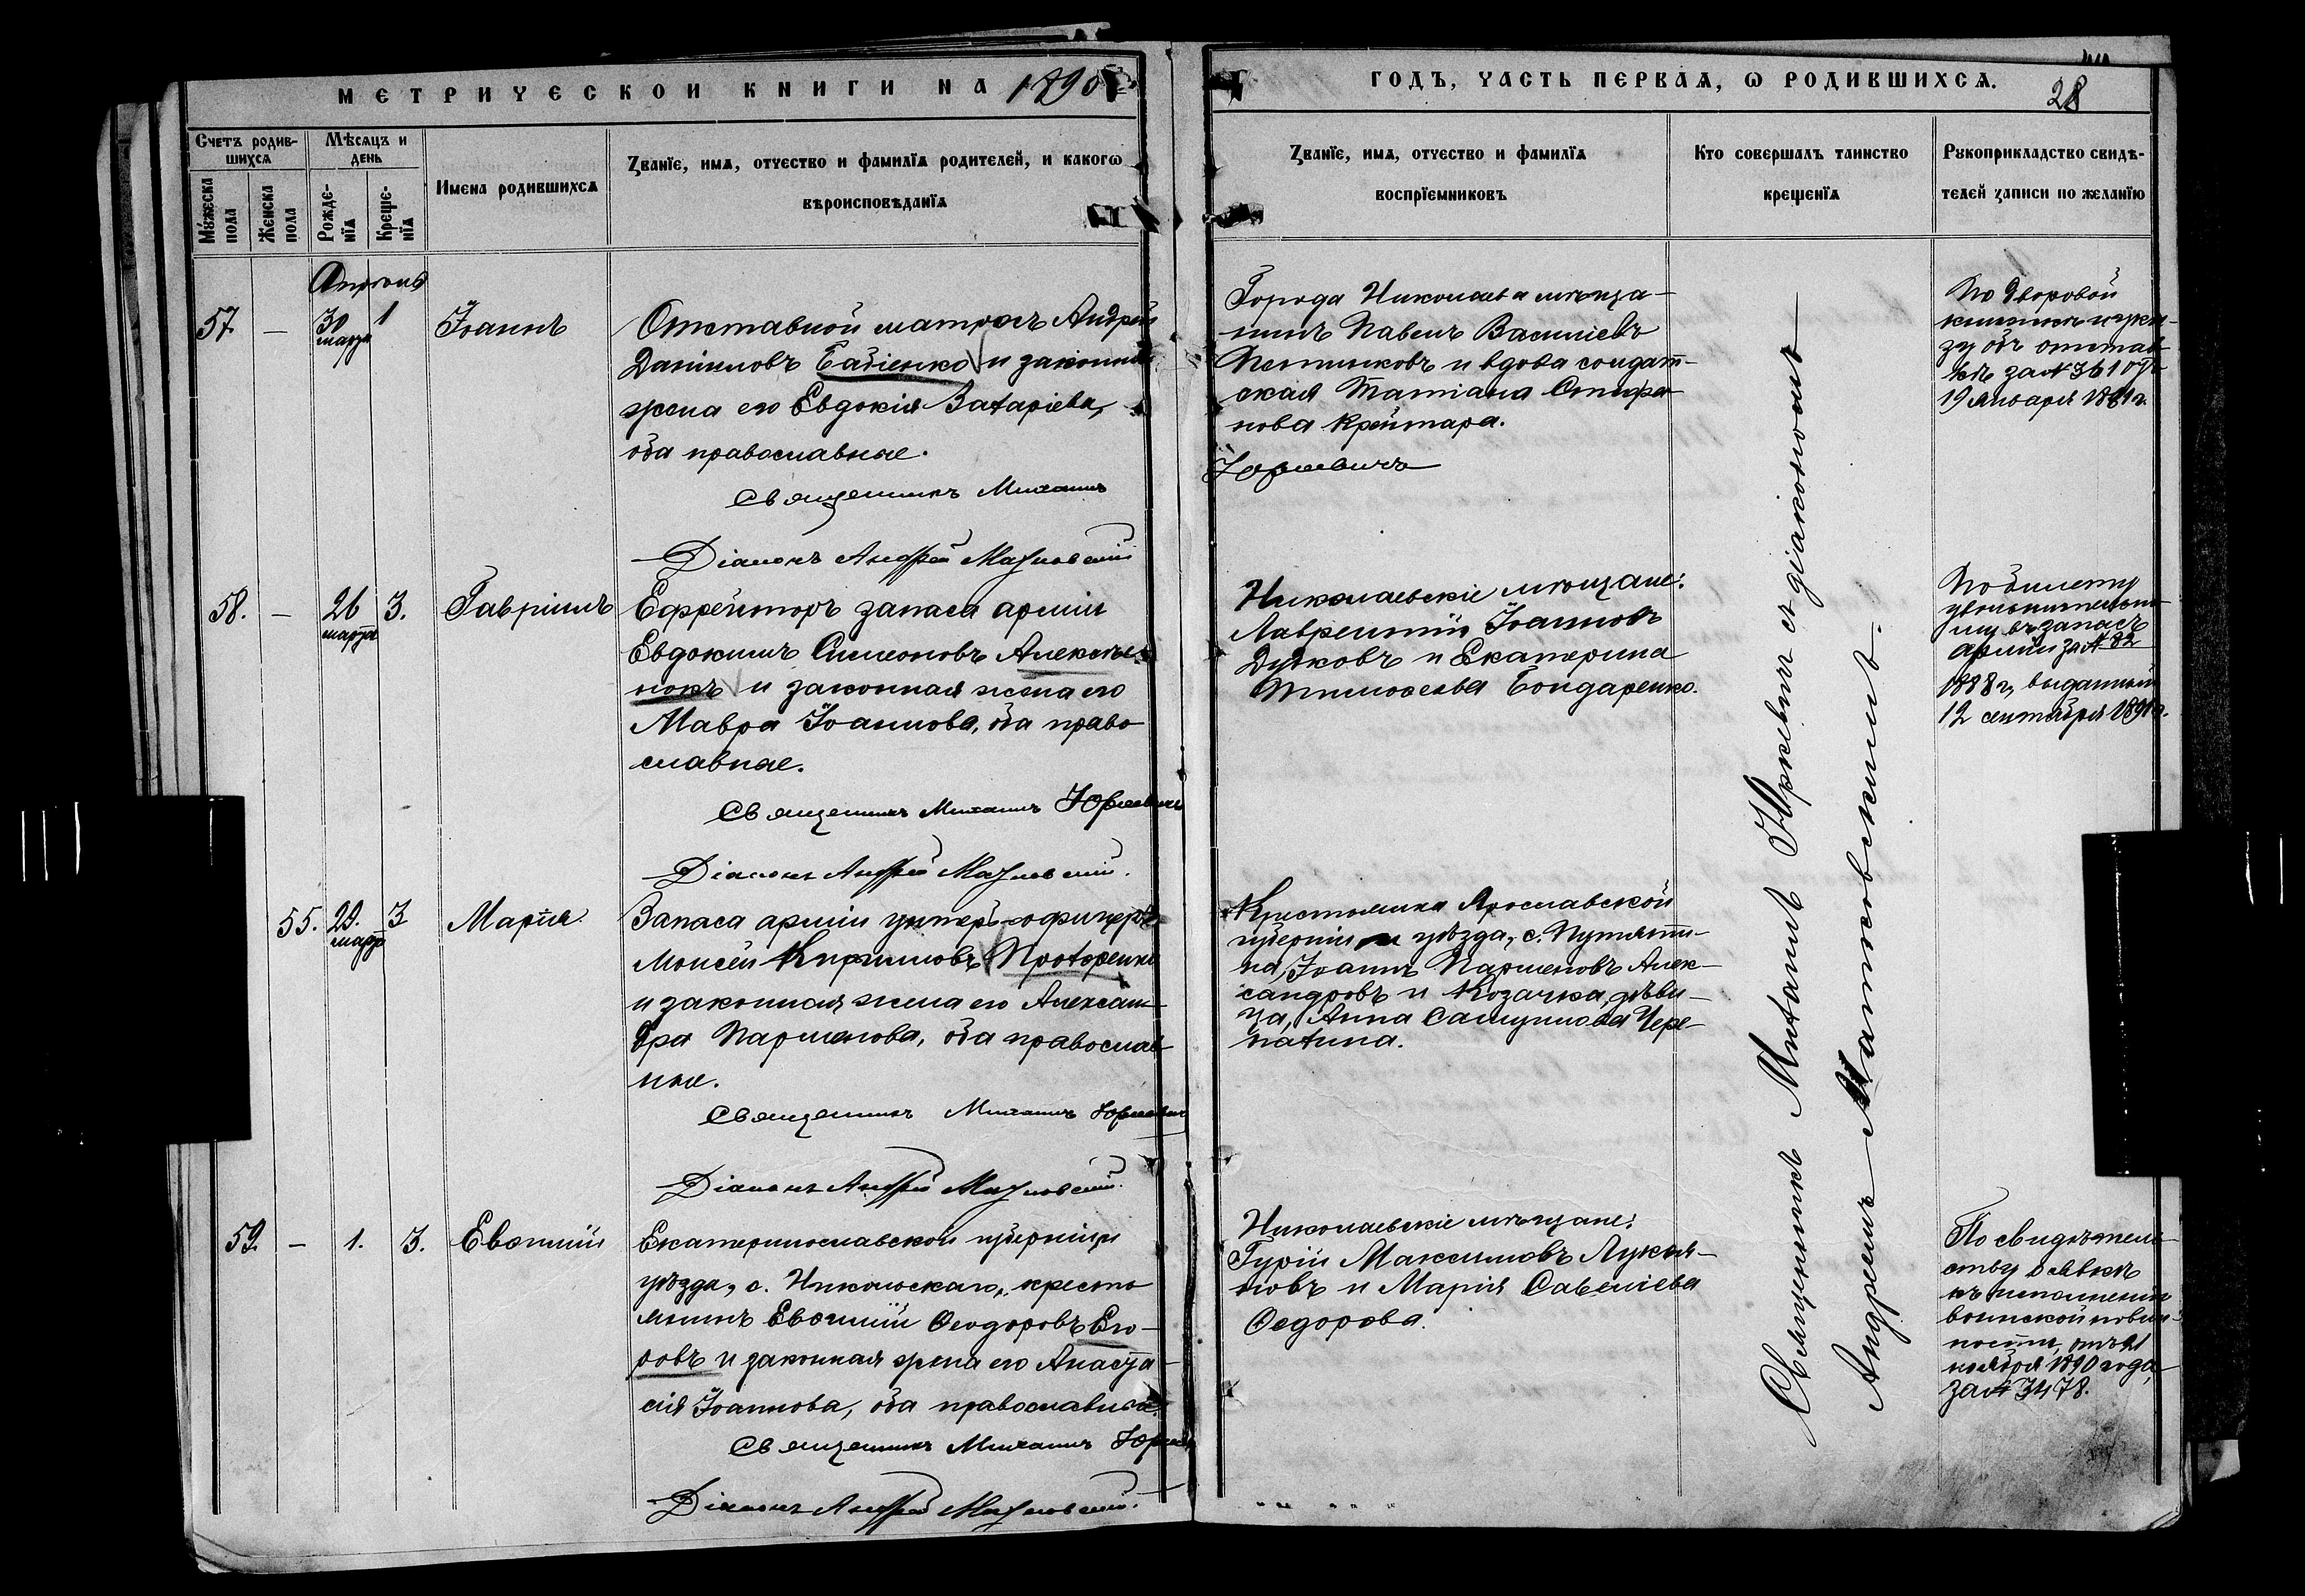 МЕТРИЧЕСКОЙ КНИГИ НА 1890
ГОДЪ, ЧАСТЬ ПЕРВАЯ, Ѡ РОДИВШИХСЯ.
28
Счетъ родив-
шихся
Мѣсяцъ и
день
Мужеска
пола
Женска
пола
Рожде-
нїя
Креще-
нїя
Имена родившихся
Званїе, имя, отчество и фамилїя родителей, и какогѡ
вѣроисповѣданїя
Званїе, имя, отчество и фамилїя
воспрїемниковъ
Кто совершалъ таинство
крещенїя
Рукоприкладство свидѣ-
телей записи по желанїю
57. — 30 марта 1 Іоаннъ
Отставной матросъ Андрей
Даніиловъ Бабіенко и законная
жена его Евдокія Захаріева,
оба православные.
Священникъ Михаилъ
Юркевичъ
Діаконъ Андрей
Города Николаева мѣща-
нинъ Павелъ Василіевъ
и вдова солдат-
ская Татіана Стефа-
нова
По дворовой
книжкѣ и ука-
зу объ отстав-
кѣ за № 361 отъ
19 Января
58. — 26 марта 3. Гавріилъ
Ефрейторъ запаса арміи
Евдокимъ Симеоновъ Алексѣе-
нокъ и законная жена его
Мавра Іоаннова, оба право
славные.
Священникъ Михаилъ Юркевичъ
Діаконъ Андрей
Николаевскіе мѣщане:
Лаврентій Іоанновъ
Дудковъ и Екатерина
Тимоѳеева Бондаренко.
По билету
запасъ
арміи за № 82
1888 г., выданный
12 сентября
55. 29. марта 3 Марія
Запаса арміи унтеръ-офицеръ
Моисей Кирилловъ Прохоренко
и законная жена его Алексан-
дра Парменова, оба православ
ные.
Священникъ Михаилъ Юркевичъ
Діаконъ Андрей
Крестьянинъ Ярославской
губерніи и уѣзда, с. Путяти-
на, Іоаннъ Парменовъ Алек-
сандровъ и Козачка, дѣви-
ца, Анна Самуилова Чере-
пахина.
59. — 1. 3. Евѳимій
Екатеринославской губерніи
уѣзда, с. Никольскаго, кресть
янинъ Евѳимій Ѳеодоровъ Его-
ровъ и законная жена его Анаста-
сія Іоаннова, оба православные.
Священникъ Михаилъ
Діаконъ Андрей
Николаевскіе мѣщане:
Гурій Максимовъ Лукья-
новъ и Марія Савеліева
Ѳедорова.
По свидѣтель-
ству о явкѣ
къ исполненію
воинской повин-
ности, отъ 21
ноября 1890 года,
за № 3478.
Священникъ Михаилъ Юркевичъ съ діакономъ
Андреемъ